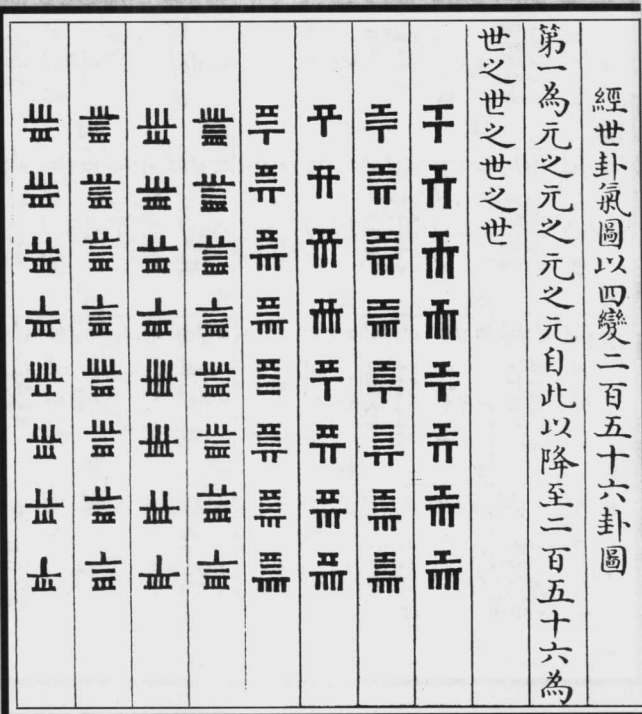 經世卦氣圖以四變二百五十六卦圖
第一為元之元之元之元自此以降至二百五十六為
世之世之世之世